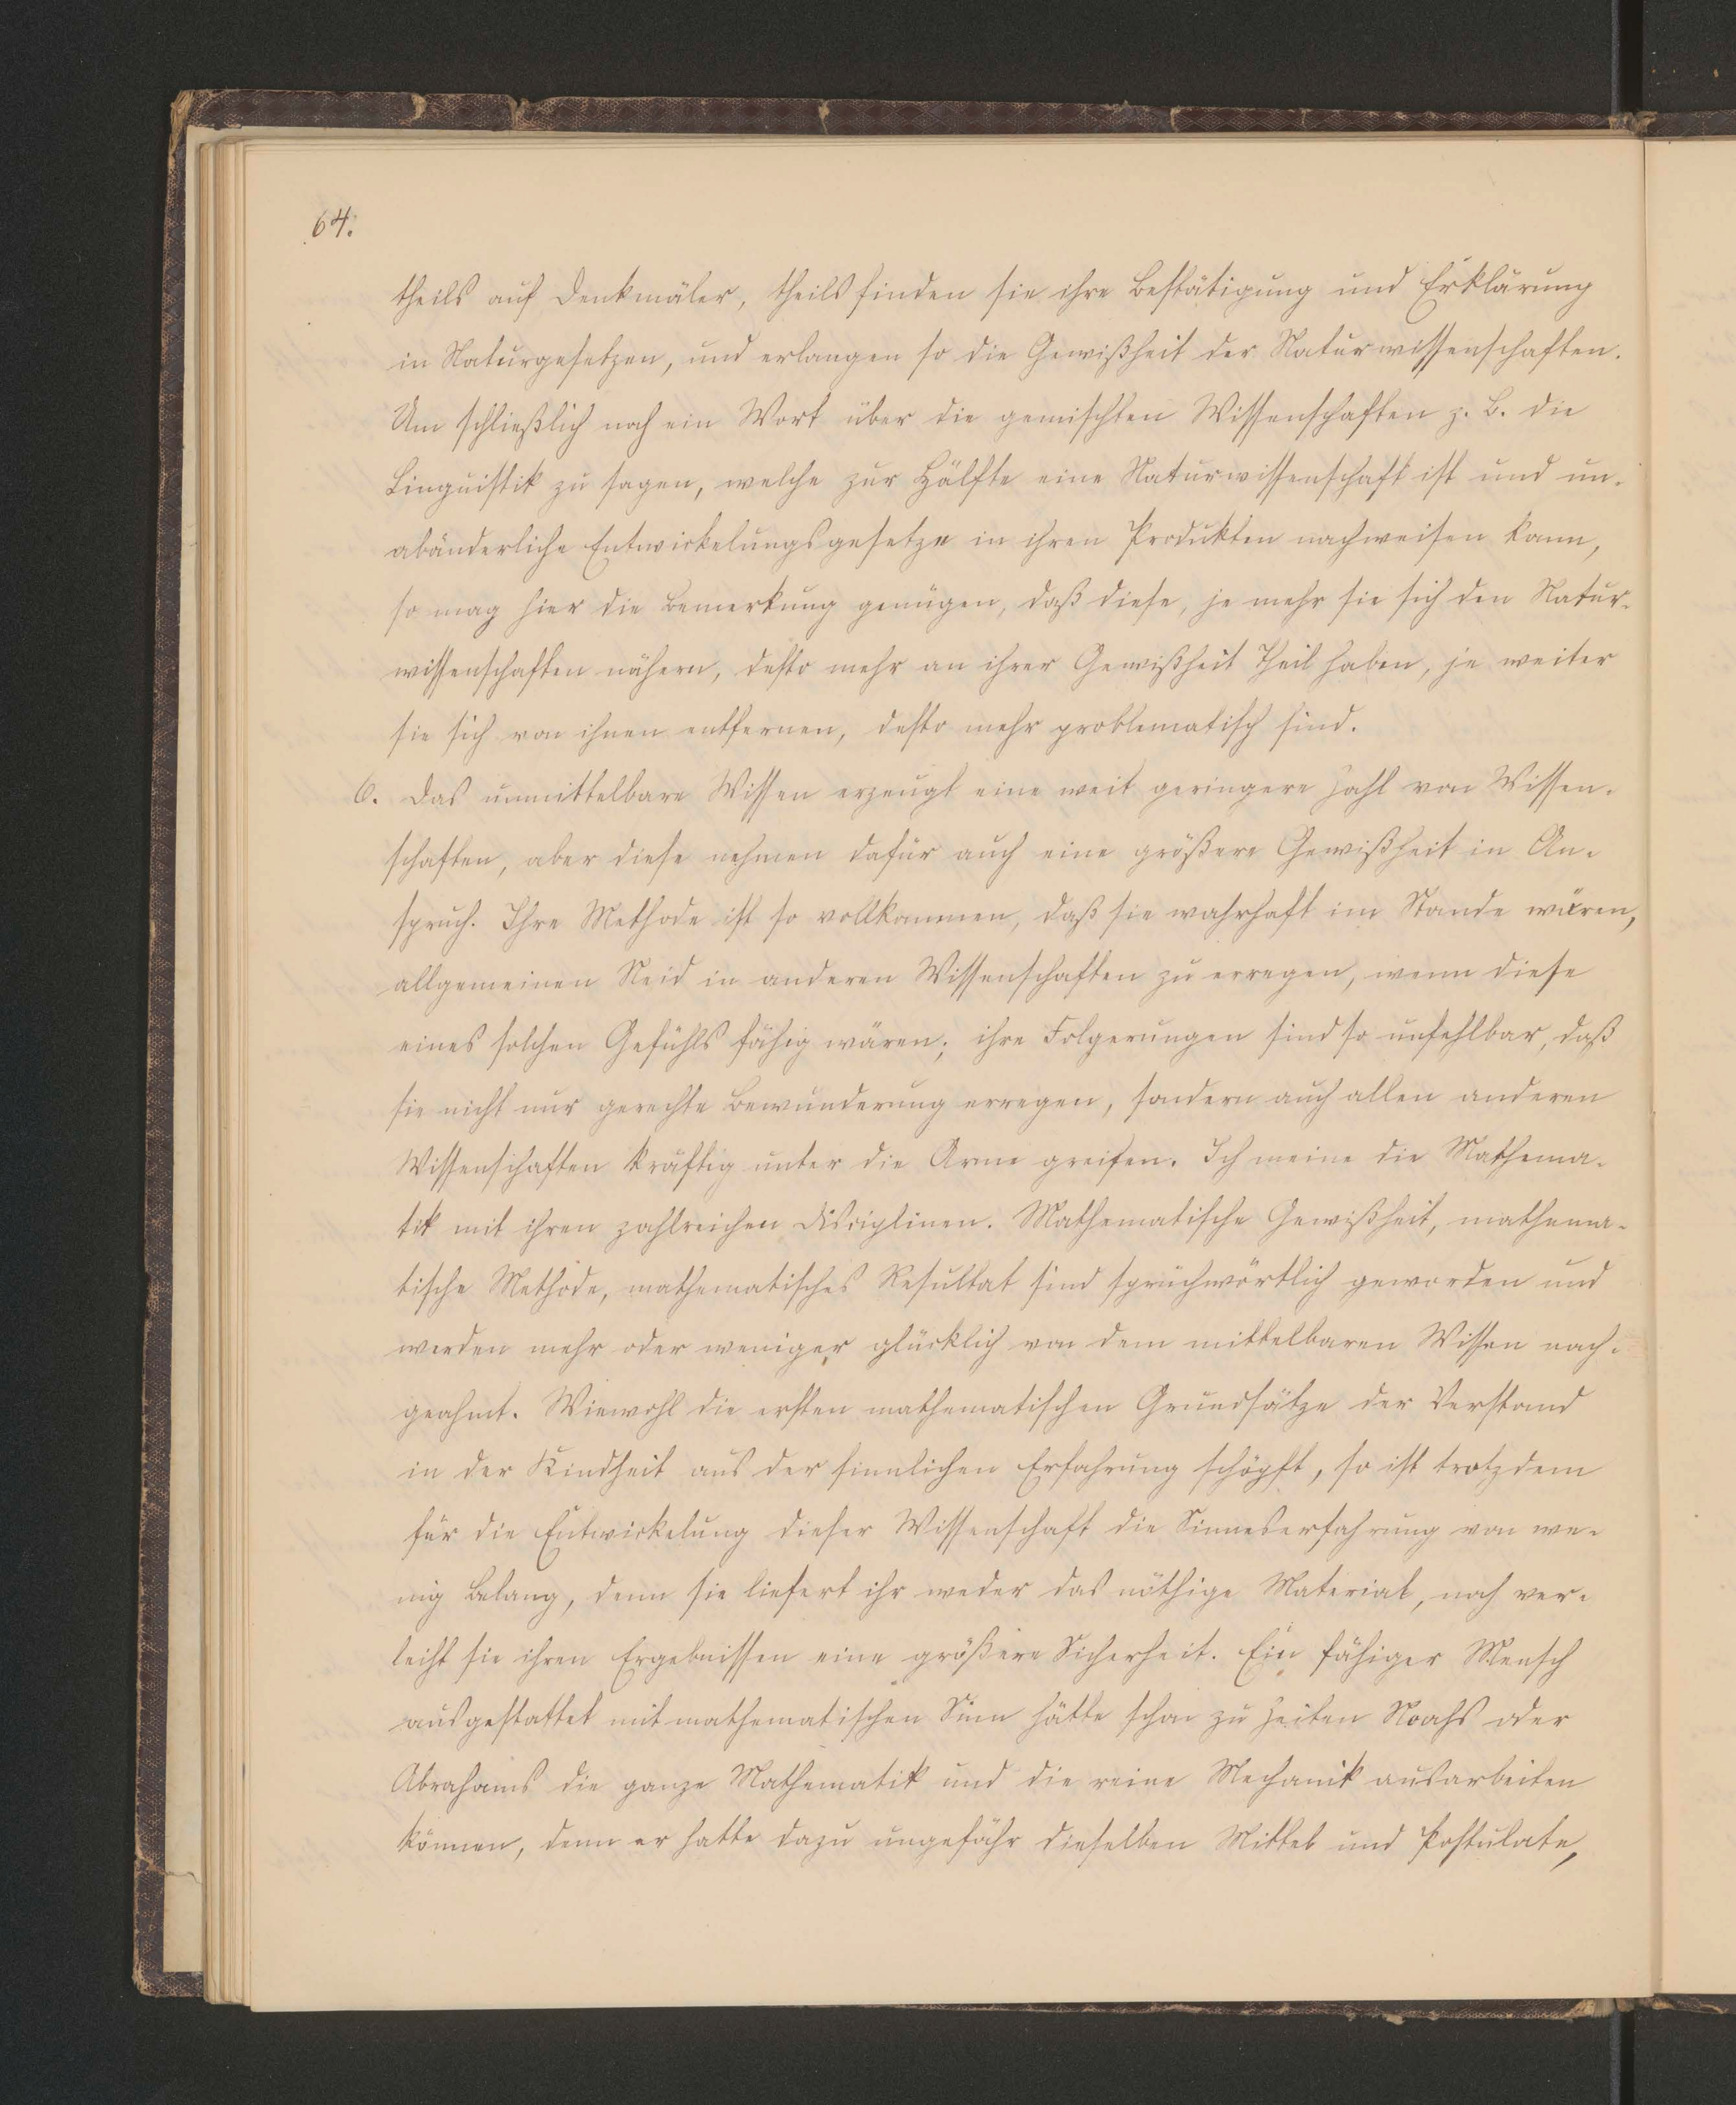 64.
theils auf Denkmäler, theils finden sie ihre Bestätigung und Erklärung
in Naturgesetzen, und erlangen so die Gewißheit der Naturwissenschaften.
Um schließlich noch ein Wort über die gemischten Wissenschaften z. B. die
Linguistik zu sagen, welche zur Hälfte eine Naturwissenschaft ist und un-
abänderliche Entwickelungsgesetze in ihren Produkten nachweisen kann,
so mag hier die Bemerkung genügen, daß diese, je mehr sie sich den Natur-
wissenschaften nähern, desto mehr an ihrer Gewißheit Theil haben, je weiter
sie sich von ihnen entfernen, desto mehr problematisch sind.
6. Das unmittelbare Wissen erzeugt eine weit geringere Zahl von Wissen-
schaften, aber diese nehmen dafür auch eine größere Gewißheit in An-
spruch. Ihre Methode ist so vollkommen, daß sie wahrhaft im Stande wären,
allgemeinen Neid in anderen Wissenschaften zu erregen, wenn diese
eines solchen Gefühls fähig wären; ihre Folgerungen sind so unfehlbar, daß
sie nicht nur gerechte Bewunderung erregen, sondern auch allen anderen
Wissenschaften kräftig unter die Arme greifen. Ich meine die Mathema-
tik mit ihren zahlreichen Disciplinen. Mathematische Gewißheit, mathema-
tische Methode, mathematisches Resultat sind sprüchwörtlich geworden und
werden mehr oder weniger glücklich von dem mittelbaren Wissen nach-
geahmt. Wiewohl die ersten mathematischen Grundsätze der Verstand
in der Kindheit aus der sinnlichen Erfahrung schöpft, so ist trotzdem
für die Entwickelung dieser Wissenschaft die Sinneserfahrung von we-
nig Belang, denn sie liefert ihr weder das nöthige Material, noch ver-
leiht sie ihren Ergebnissen eine größere Sicherheit. Ein fähiger Mensch
ausgestattet mit mathematischen Sinn hätte schon zu Zeiten Noahs oder
Abrahams die ganze Mathematik und die reine Mechanik ausarbeiten
können, denn er hatte dazu ungefähr dieselben Mittel und Postulate,